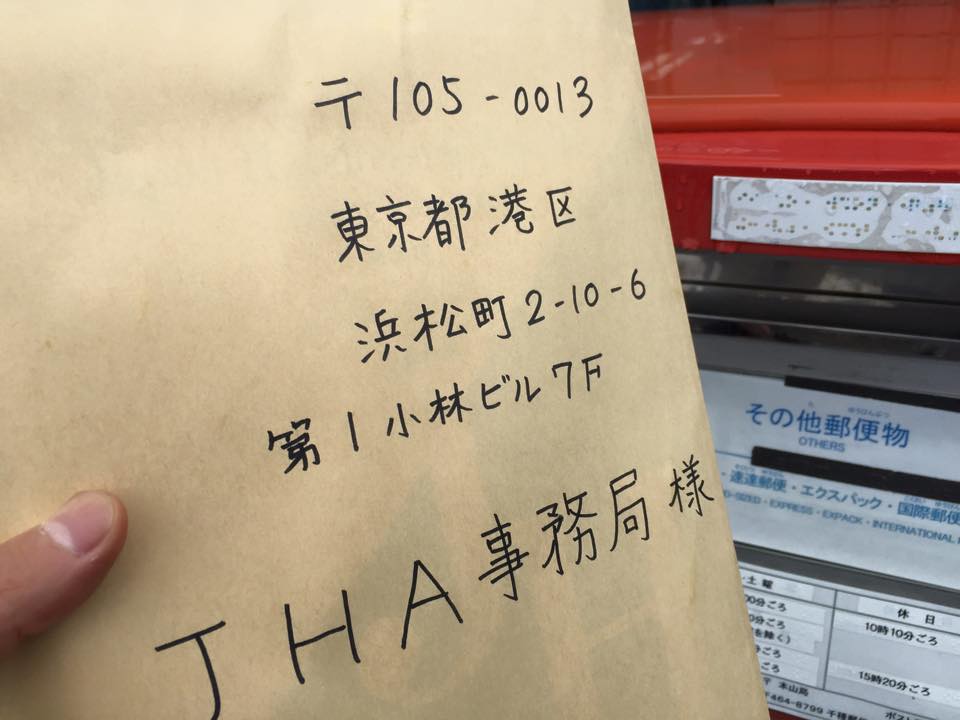 〒105-0013
東京都港区
浜松町2-10-6
第1小林ビル7F
JHA事務局様
その他郵便物
OTHERS
速達郵便・エクスパック・国際郵便
EXPRESS・EXPACK・INTERNATIONAL
土曜
休日
00分ごろ
0分ごろ
を除く)
分ごろ
分ごろ
10時10分ごろ
15時20分ごろ
本山局
〒464-8799 千種